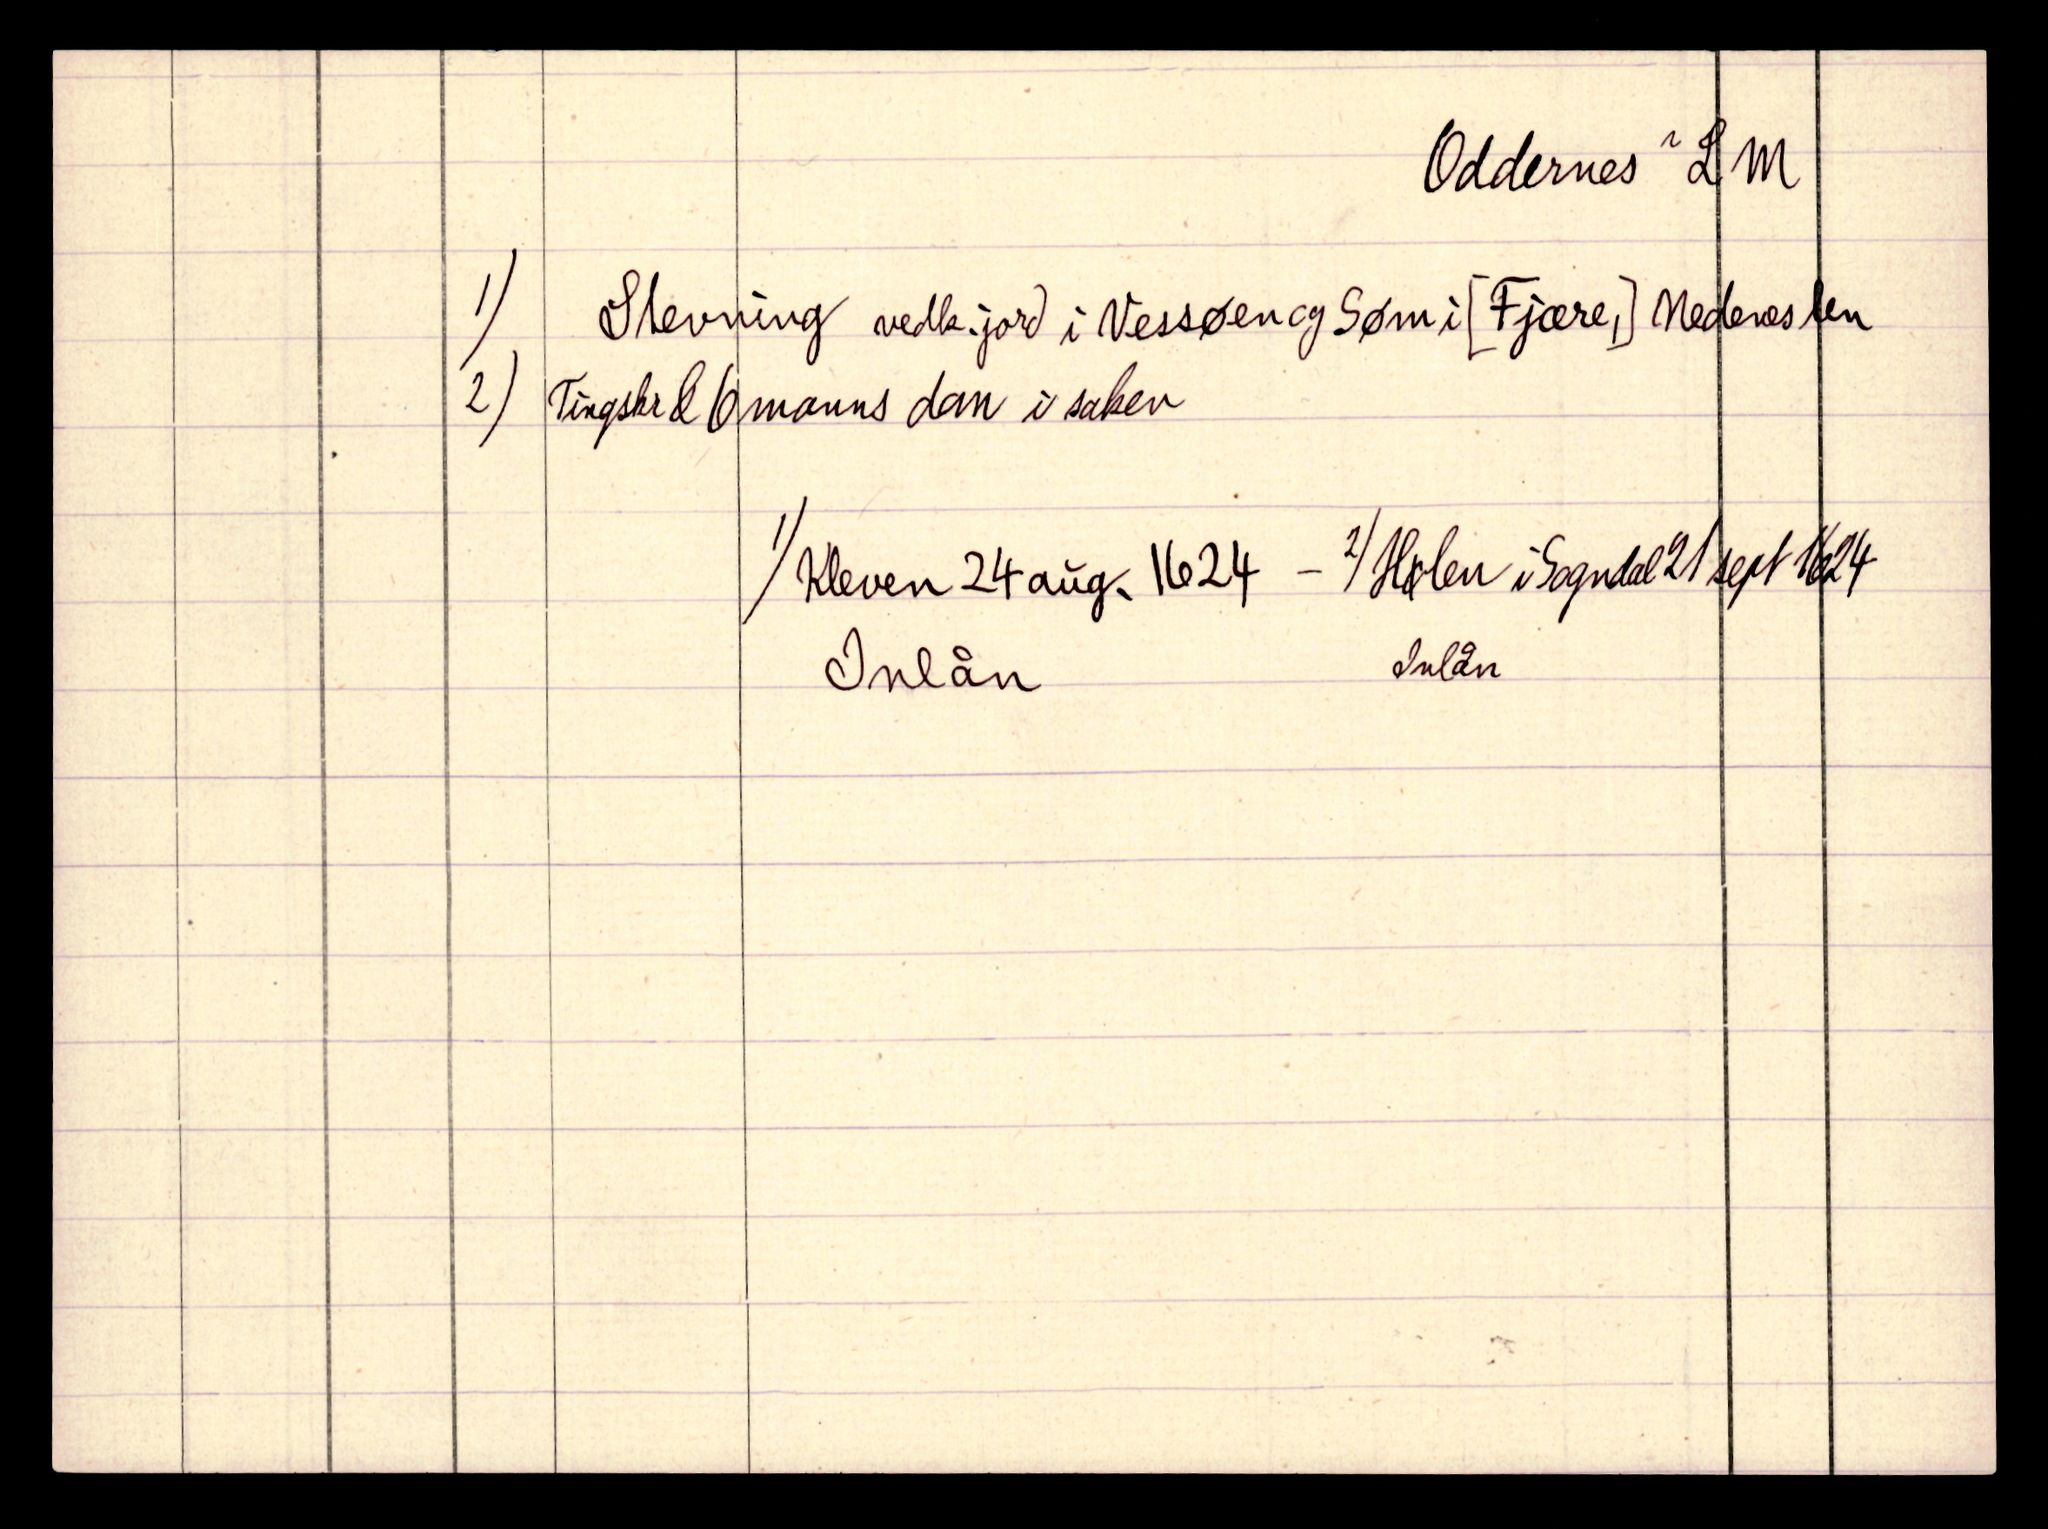 Oddernes ~ L M
1) Stevning vedk. jord i Vessøen og Søm i [Fjære,] Nedenes len
2) Tingskr & 6 manns dom i saken
1) Kleven 24 aug. 1624 – 2) Holen i Sogndal 21 sept 1624
Inlån Inlån